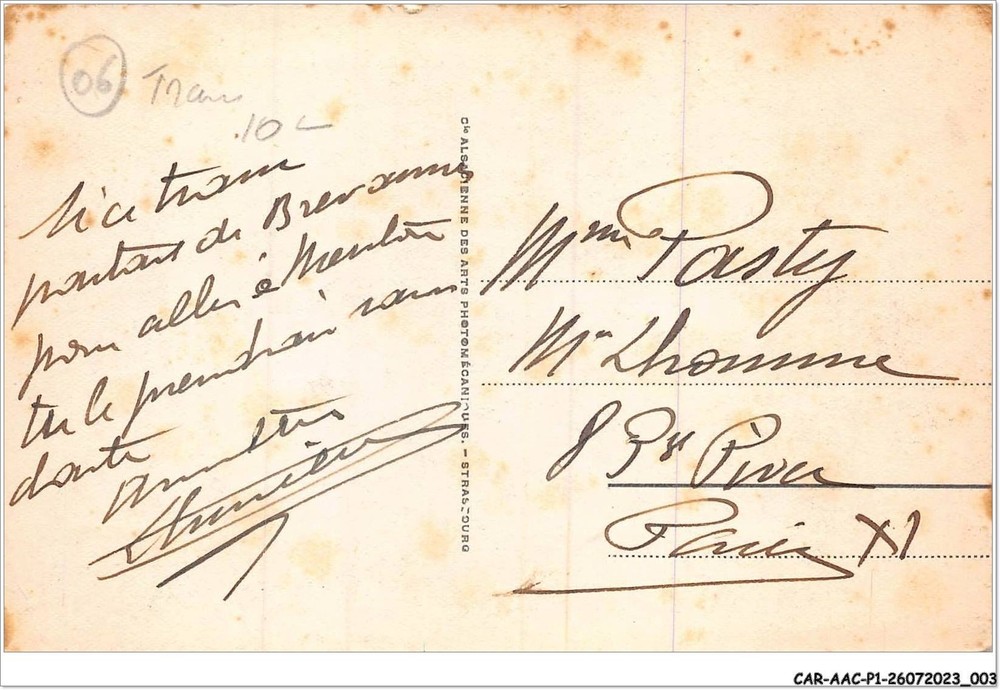 06 Tram
10 
tram
partant de Brevannes
pour aller à Menton
tu le prendrais sans
doute
Cie ALSACIENNE DES ARTS PHOTOMÉCANIQUES. - STRASBOURG
Mme Pasty
Mme Lhomme
8 Piver
Paris XI
CAR-AAC-P1-26072023_003